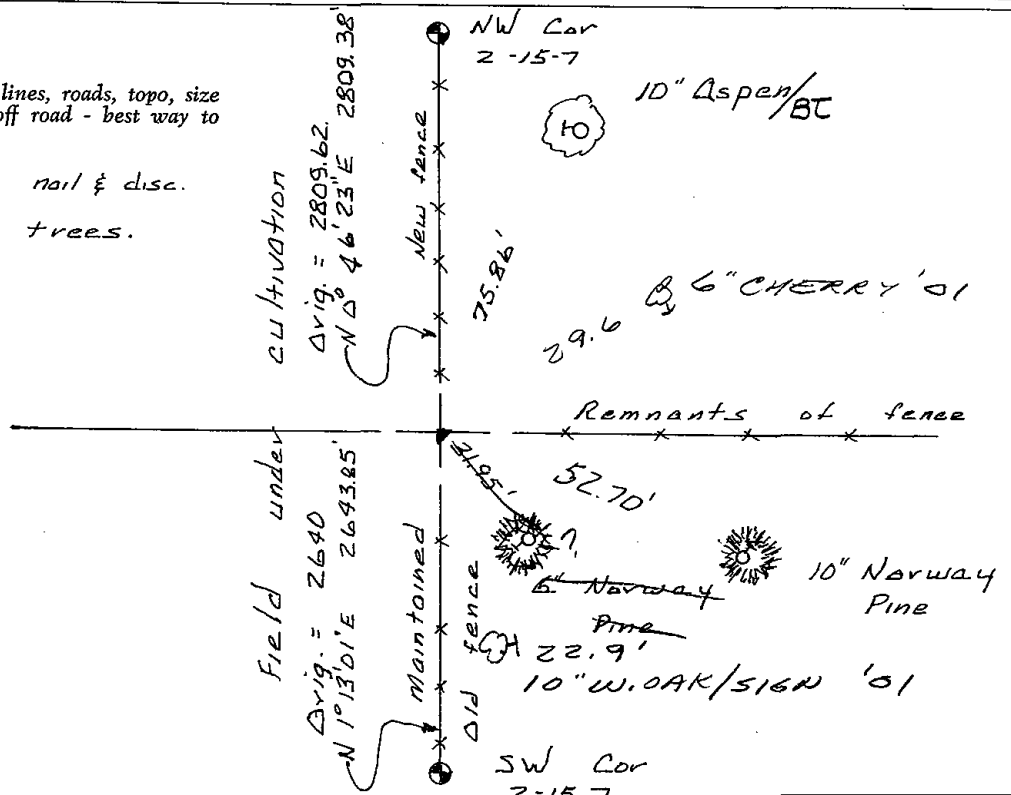 NW Cor
2-15-7
lines, roads, topo, size
off road - best way to
nail & disc.
trees.
10" Aspen/BT
cultivation
Orig. = 2809.62
N 0° 46' 23" E 2809.38'
New fence
75.86'
29.6
6" CHERRY '01
Remnants of fence
Field under
Orig. = 2640
N 1° 13' 01" E 2643.85'
Maintained
Old fence
52.70'
?
6" Norway
Pine
10" Norway
Pine
22.9'
10" W. OAK/SIGN '01
SW Cor
2-15-7